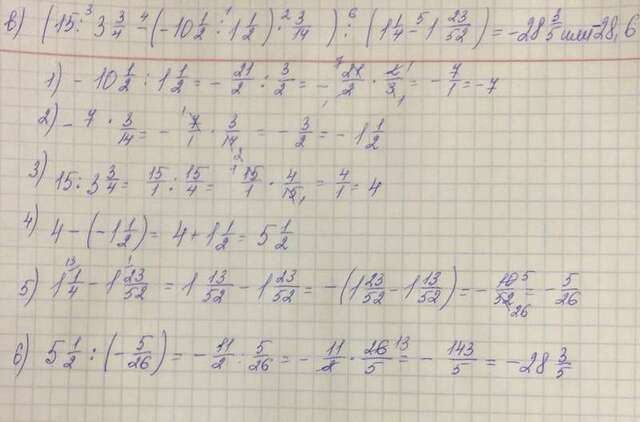 в) (15 : 3 3/4 - (-10 1/2 : 1 1/2) · 3/14) : (1 1/4 - 1 23/52) = -28 3/5 или -28,6
1) -10 1/2 : 1 1/2 = -21/2 : 3/2 = -21/2 · 2/3 = -7/1 = -7
2) -7 · 3/14 = -7/1 · 3/14 = -3/2 = -1 1/2
3) 15 : 3 3/4 = 15/1 : 15/4 = 15/1 · 4/15 = 4/1 = 4
4) 4 - (-1 1/2) = 4 + 1 1/2 = 5 1/2
5) 1 1/4 - 1 23/52 = 1 13/52 - 1 23/52 = -(1 23/52 - 1 13/52) = -10/52 = -5/26
6) 5 1/2 : (-5/26) = -11/2 : 5/26 = -11/2 · 26/5 = -143/5 = -28 3/5